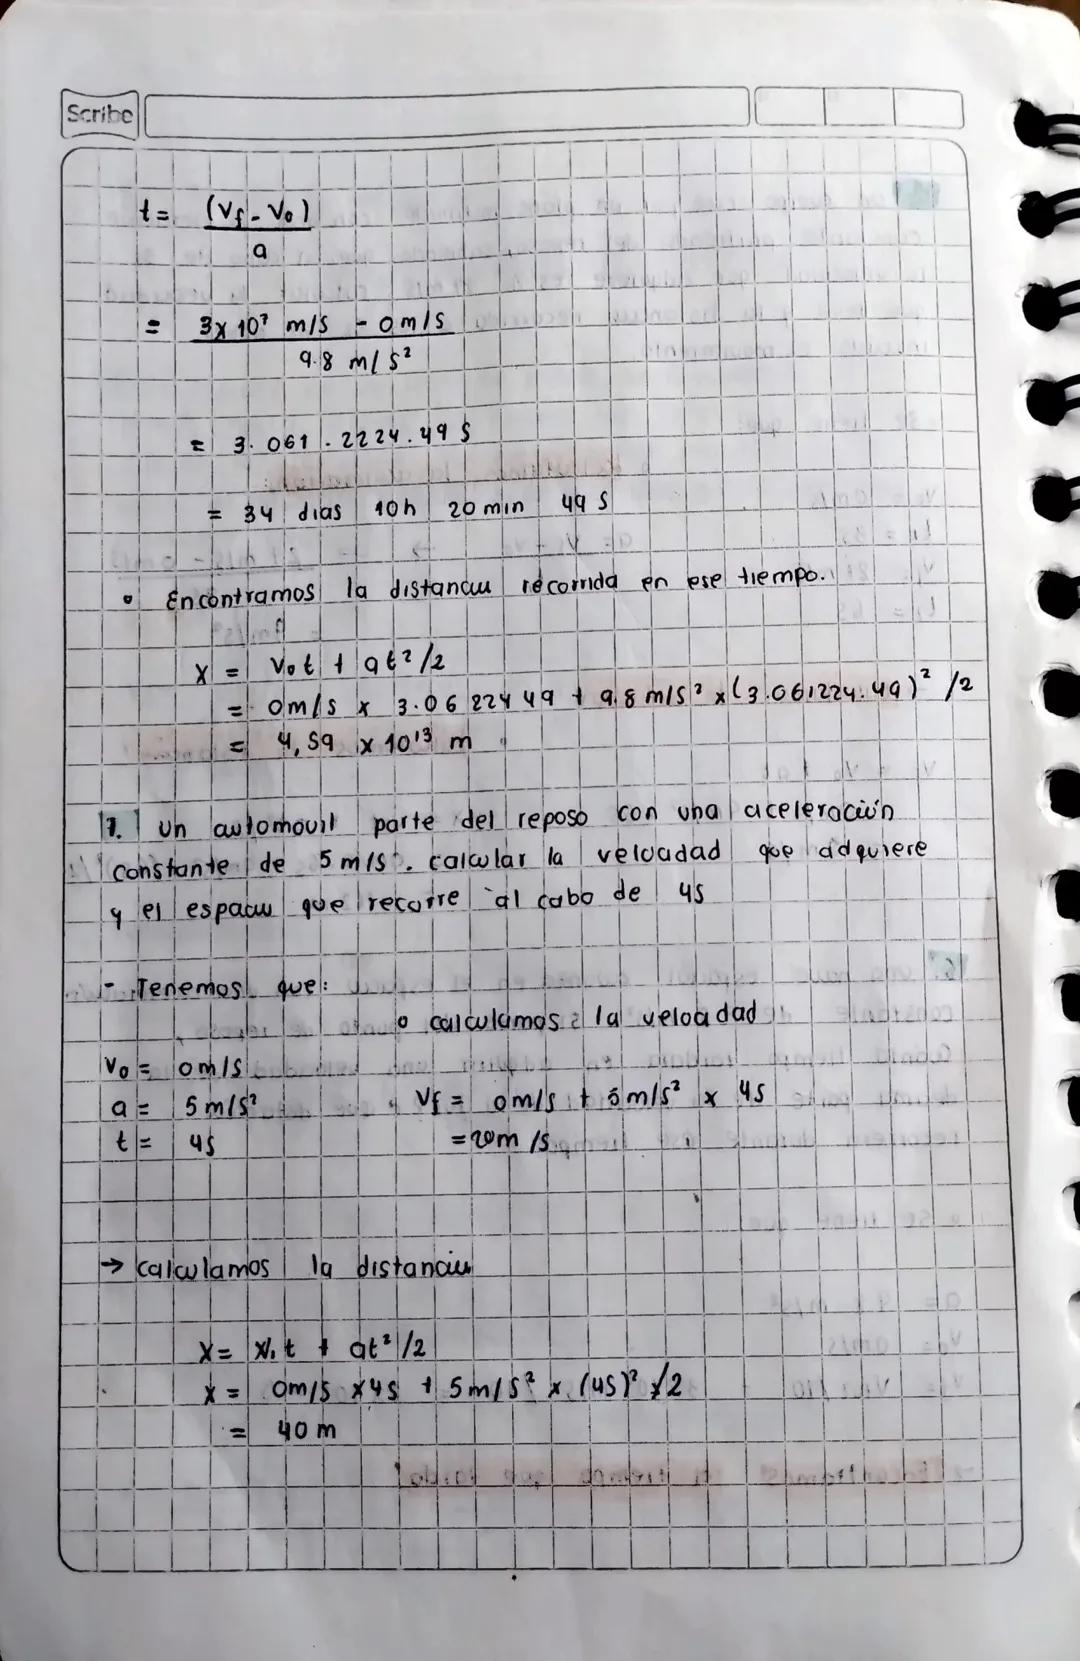 Scribe
t = (Vf - Vo)
a
= 3x 10⁷ m/s - 0m/s
9.8 m/s²
= 3. 061 . 2224.49 s
= 34 dias 10h 20 min 49 s
• Encontramos la distancia recorrida en ese tiempo.
X = Vot + at²/2
= 0m/s x 3.06 224 49 + 9.8 m/s² x (3.061224.49)² /2
= 4,59 x 10¹³ m
7. un automovil parte del reposo con una aceleración
constante de 5 m/s². calcular la velocidad que adquiere
y el espacio que recorre al cabo de 4s
- Tenemos que:
o calculamos la velocidad
Vo = 0m/s
a = 5m/s²
Vf = 0m/s + 5m/s² x 4s
t = 4s
= 20m/s
→ calculamos la distancia
X = Vot + at²/2
x = 0m/s x4s + 5m/s² x (4s)² /2
= 40 m